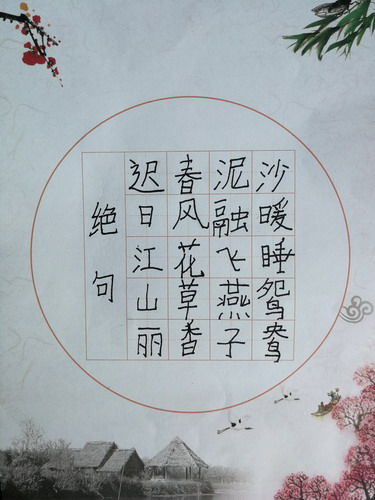 绝句
迟日江山丽
春风花草香
泥融飞燕子
沙暖睡鸳鸯